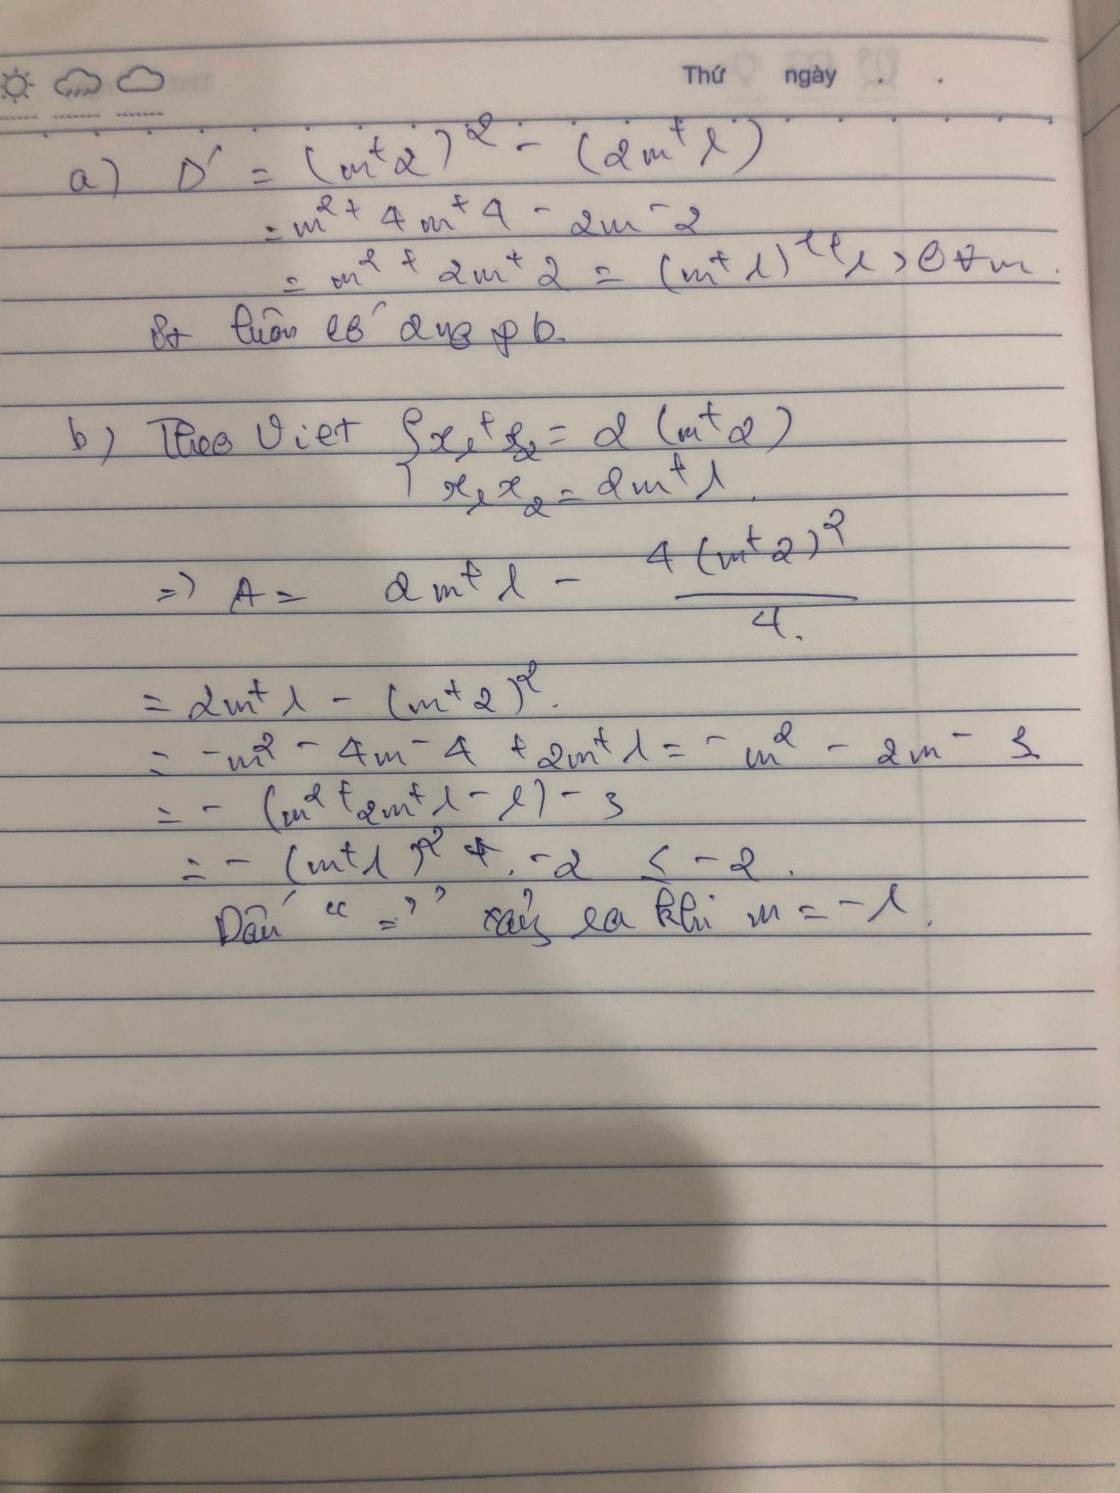 Thứ ngày . .
a) Δ' = (m+2)² - (2m+1)
= m² + 4m + 4 - 2m - 2
= m² + 2m + 2 = (m+1)² + 1 > 0 ∀m.
Pt luôn có 2 ng pb.
b) Theo Viet { x₁ + x₂ = 2(m+2)
x₁x₂ = 2m+1.
=> A = 2m+1 - 4(m+2)²/4.
= 2m+1 - (m+2)².
= -m² - 4m - 4 + 2m + 1 = -m² - 2m - 3
= - (m² + 2m + 1 - 1) - 3
= - (m+1)² - 2 ≤ -2.
Dấu "=" xảy ra khi m = -1.